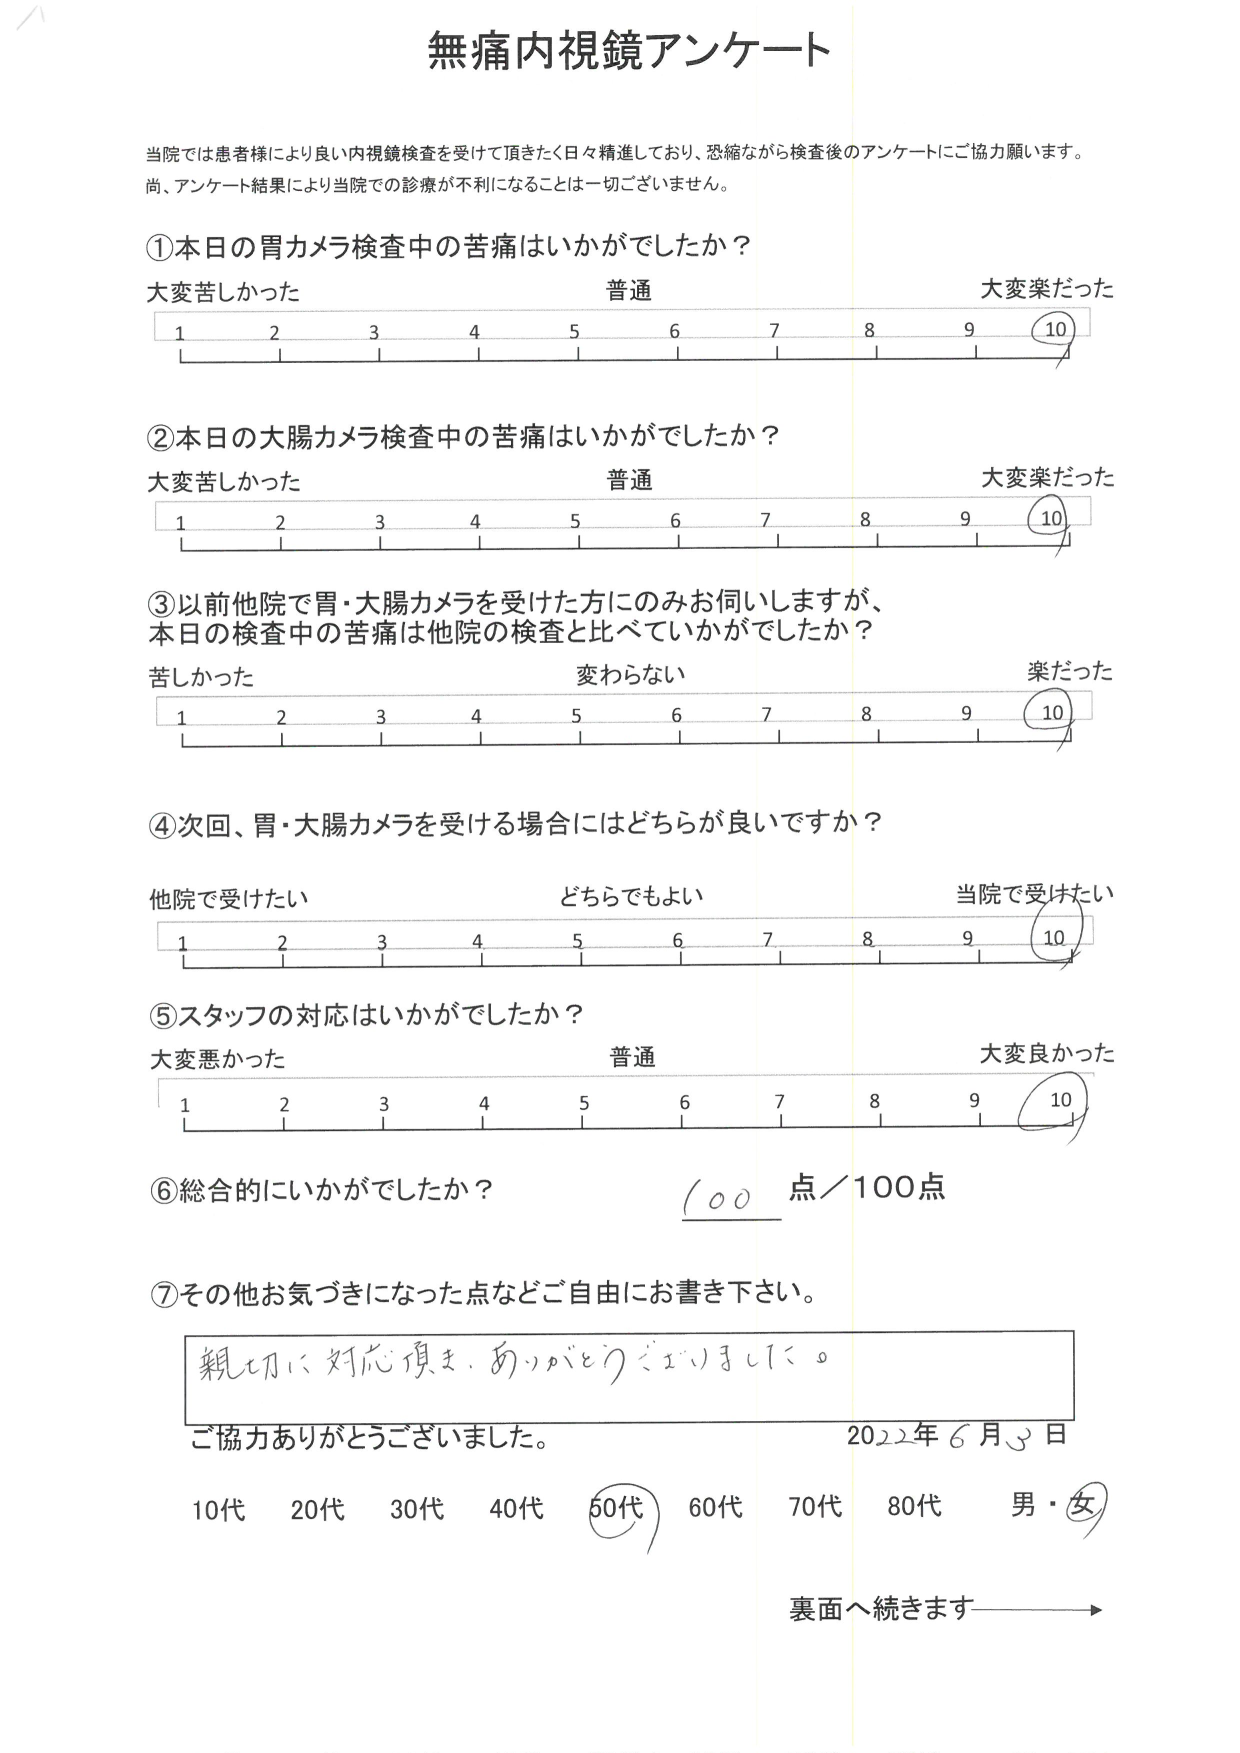 無痛内視鏡アンケート
当院では患者様により良い内視鏡検査を受けて頂きたく日々精進しており、恐縮ながら検査後のアンケートにご協力願います。
尚、アンケート結果により当院での診療が不利になることは一切ございません。
①本日の胃カメラ検査中の苦痛はいかがでしたか？
大変苦しかった 普通 大変楽だった
1 2 3 4 5 6 7 8 9 10
②本日の大腸カメラ検査中の苦痛はいかがでしたか？
大変苦しかった 普通 大変楽だった
1 2 3 4 5 6 7 8 9 10
③以前他院で胃・大腸カメラを受けた方にのみお伺いしますが、
本日の検査中の苦痛は他院の検査と比べていかがでしたか？
苦しかった 変わらない 楽だった
1 2 3 4 5 6 7 8 9 10
④次回、胃・大腸カメラを受ける場合にはどちらが良いですか？
他院で受けたい どちらでもよい 当院で受けたい
1 2 3 4 5 6 7 8 9 10
⑤スタッフの対応はいかがでしたか？
大変悪かった 普通 大変良かった
1 2 3 4 5 6 7 8 9 10
⑥総合的にいかがでしたか？ 100 点／100点
⑦その他お気づきになった点などご自由にお書き下さい。
親切に対応頂き、ありがとうございました。
ご協力ありがとうございました。 2022年6月3日
10代 20代 30代 40代 50代 60代 70代 80代 男・女
裏面へ続きます